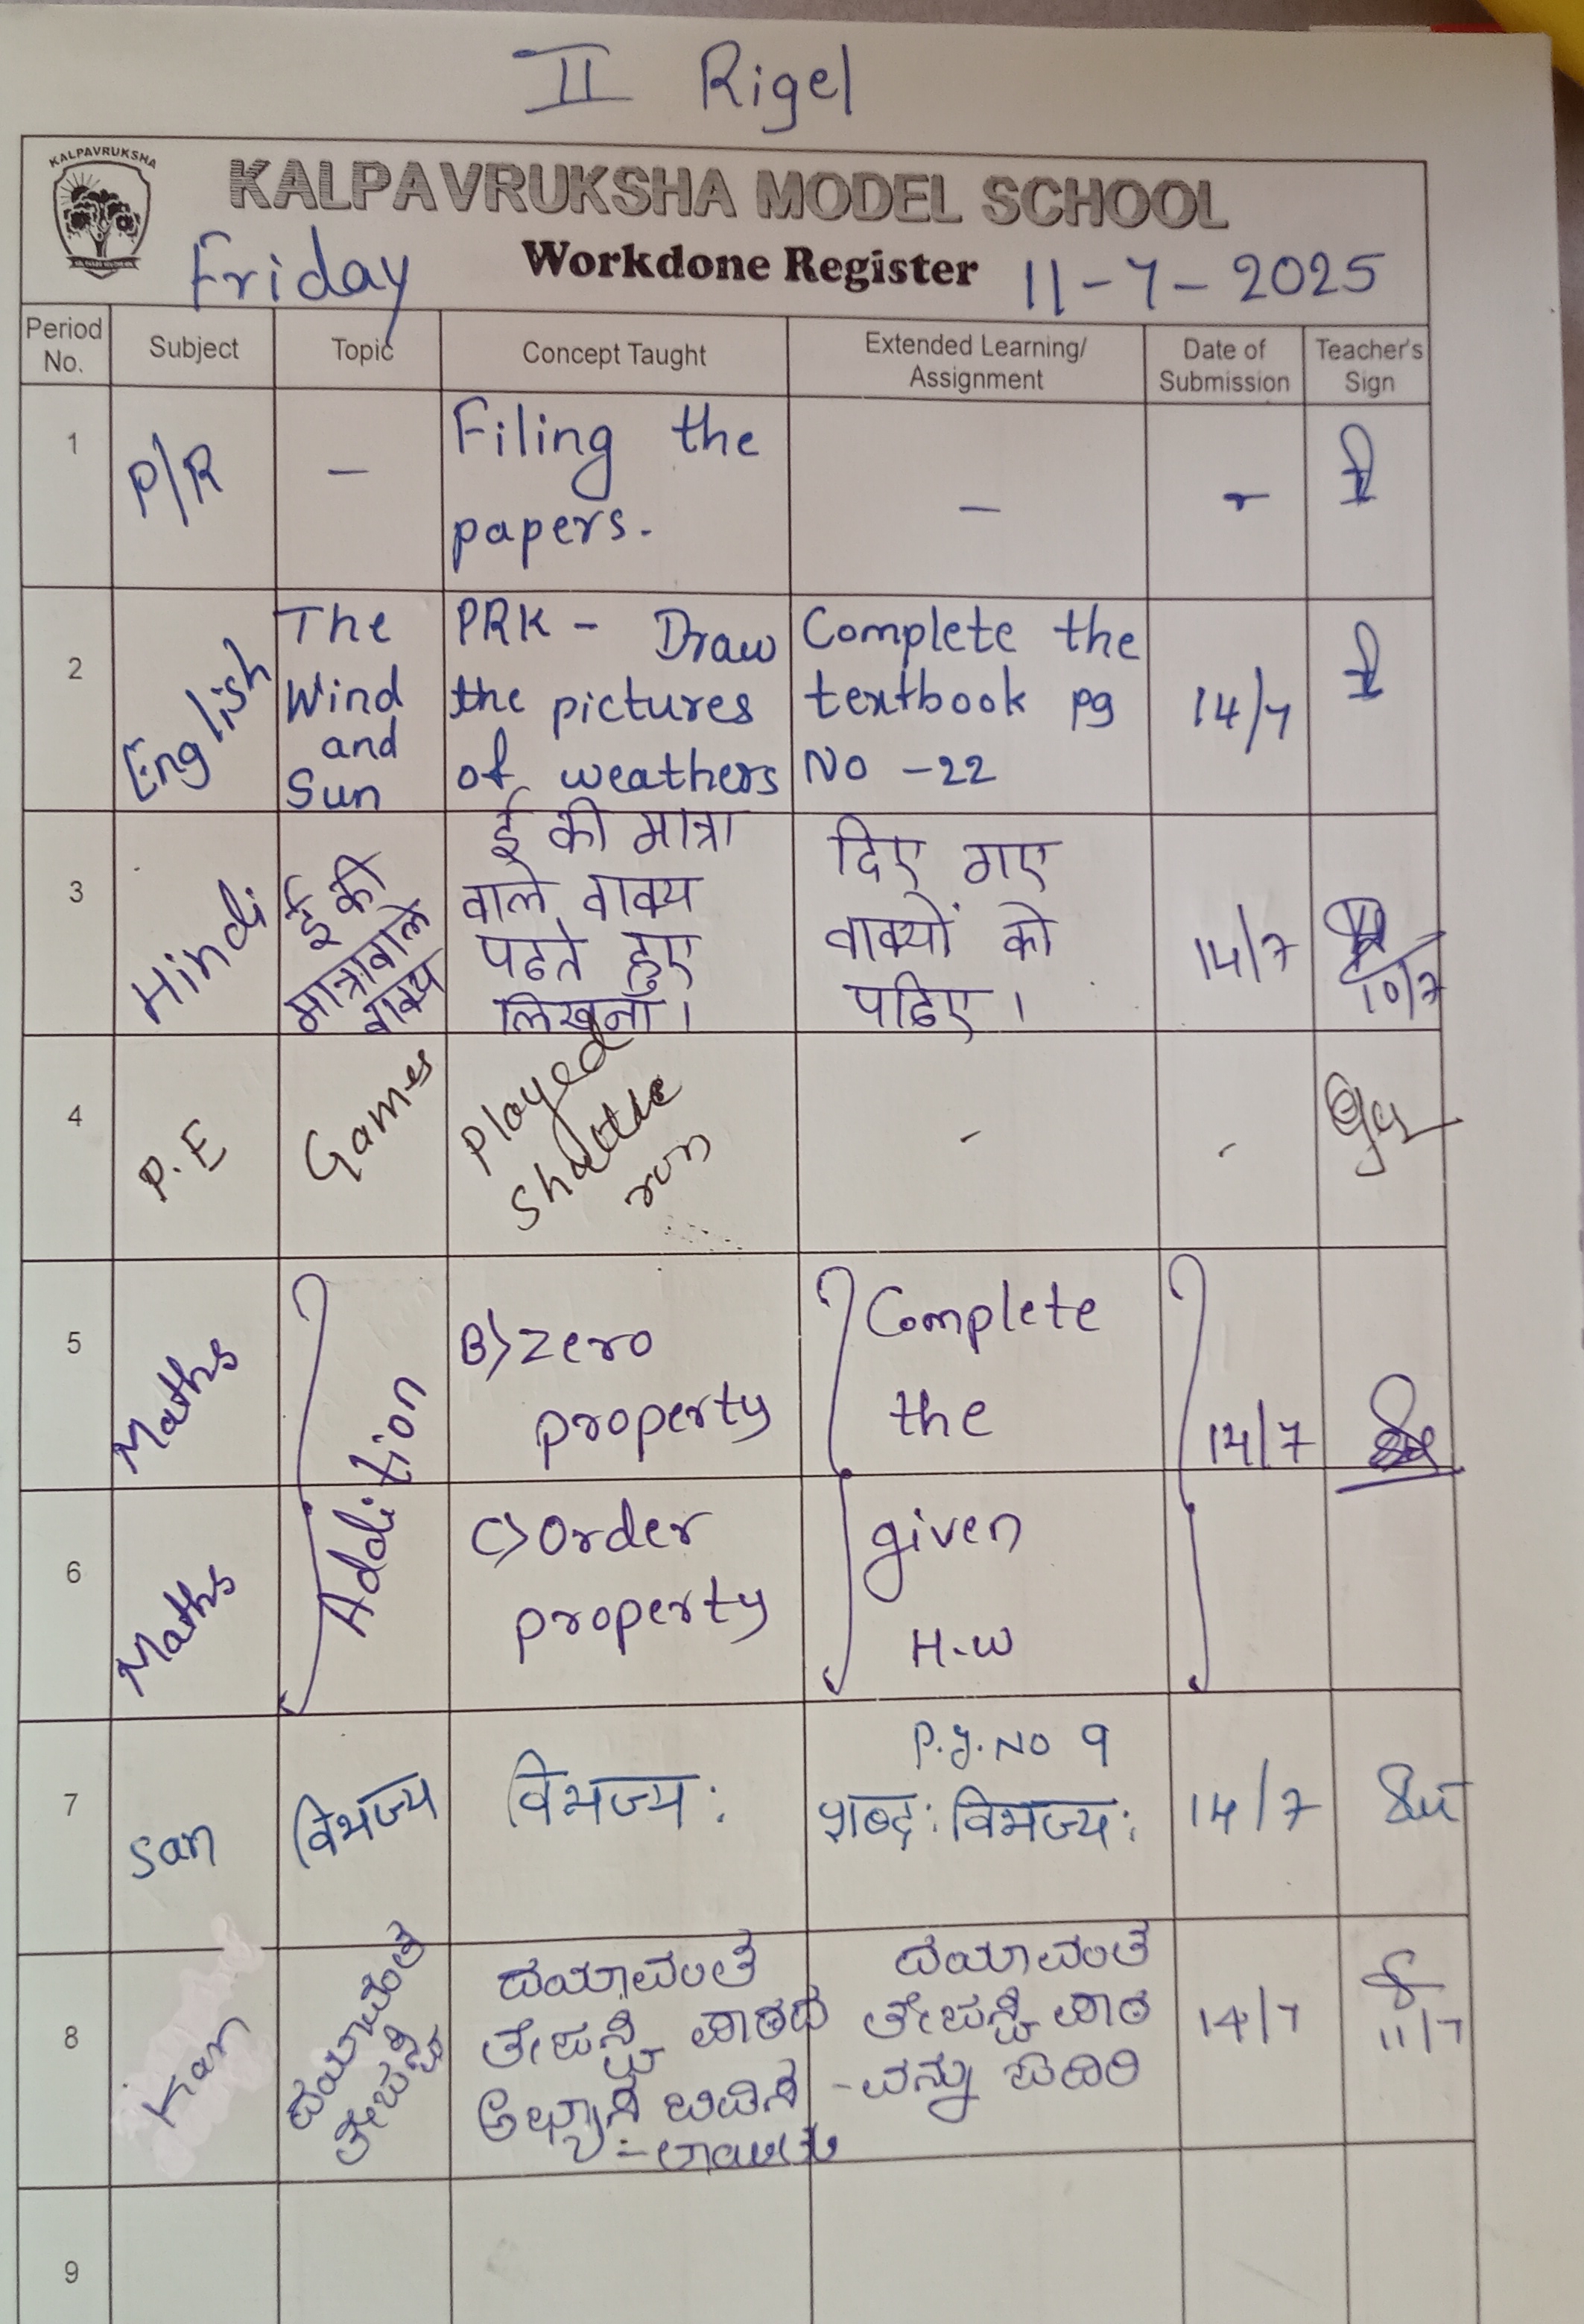 II Rigel
KALPAVRUKSHA
KALPAVRUKSHA MODEL SCHOOL
Workdone Register
Friday
11-7-2025
Period No.
Subject
Topic
Concept Taught
Extended Learning/
Assignment
Date of
Submission
Teacher's
Sign
1
P/R
—
Filing the
papers.
—
-
2
English
The
Wind
and
Sun
PRK - Draw
the pictures
of weathers
Complete the
textbook pg
No -22
14/7
3
Hindi
ई की
मात्रा वाले
वाक्य
ई की मात्रा
वाले वाक्य
पढते हुए
लिखना।
दिए गए
वाक्यों को
पढिए।
14/7
10/7
4
P.E
Games
Played
Shuttle
run
-
-
5
Maths
Addition
B) Zero
property
Complete
the
14/7
6
Maths
C) Order
property
given
H.W
7
San
विभज्य
विभज्य:
P.g. No 9
शब्द: विभज्य:
14/7
8
Kan
ದಯಾವಂತೆ
ದಯಾವಂತೆ
ಪಾಠದ
ಅಭ್ಯಾಸ
ದಯಾವಂತೆ
ಪಾಠ
-ವನ್ನು ಓದಿರಿ
14/7
11/7
9